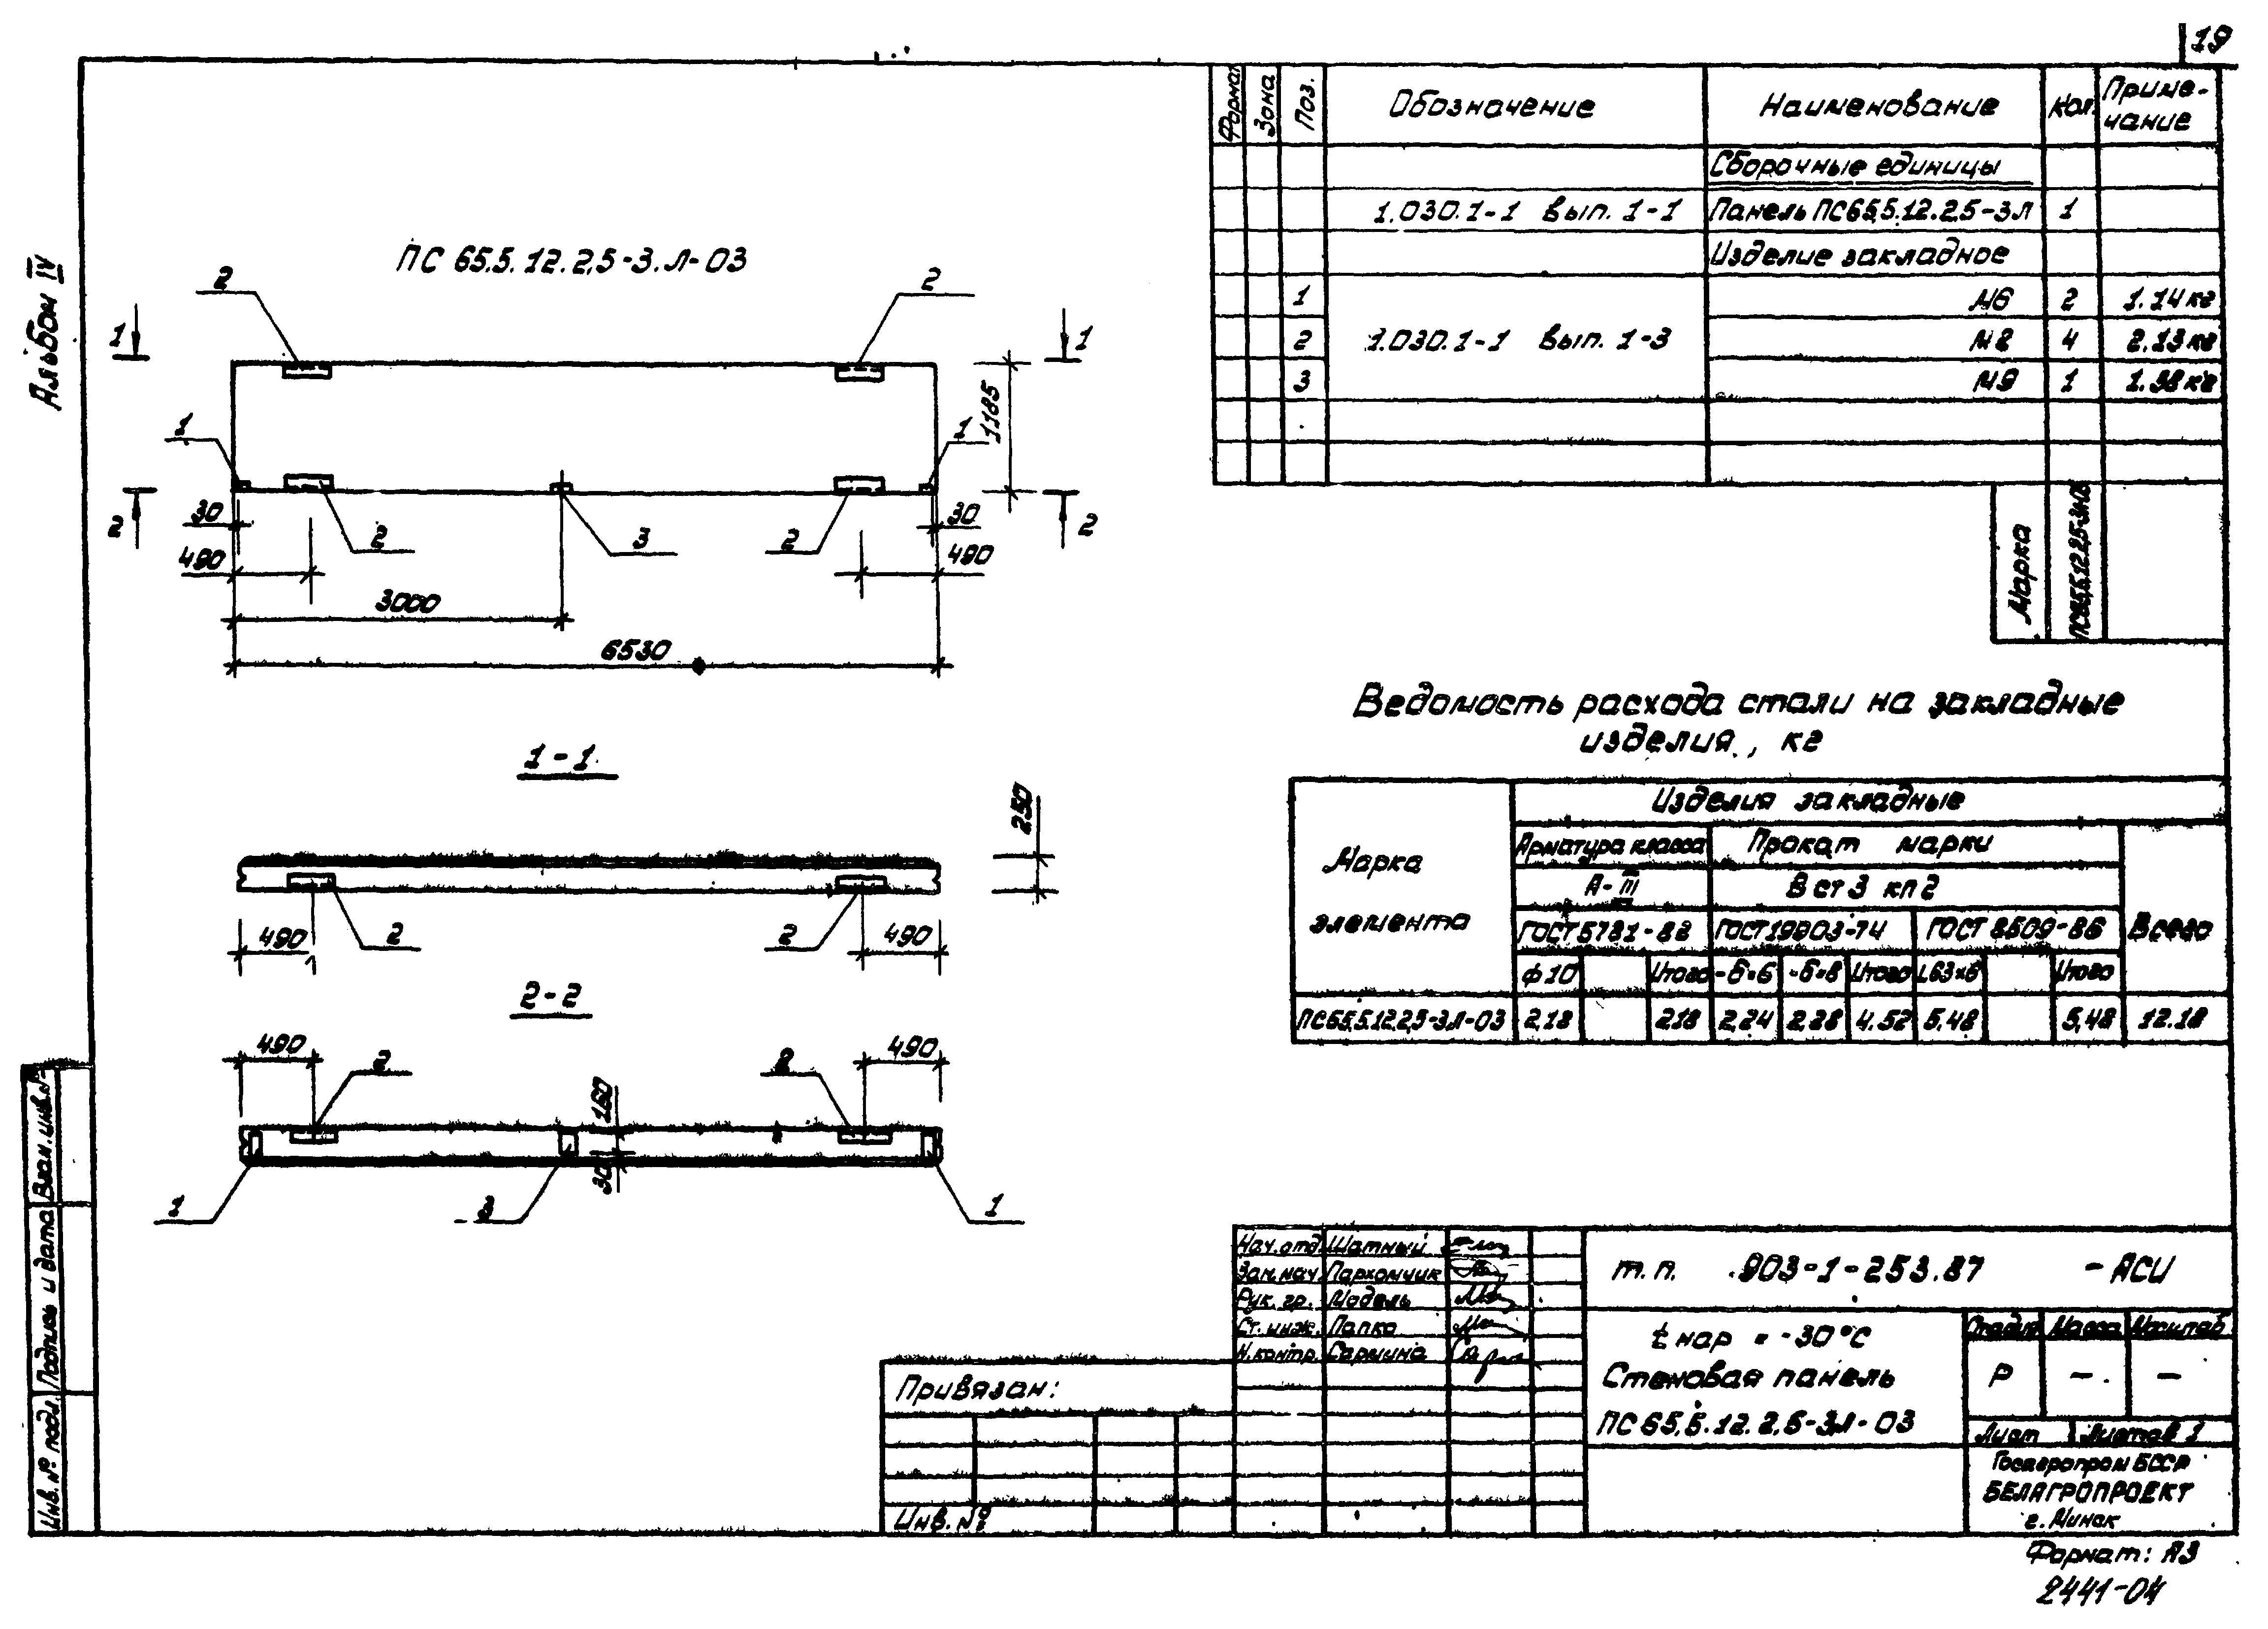 19
Альбом IV
ПС 65.5.12.2,5-3.Л-03
2
2
1
1
1
1
1185
30
30
2
2
2
3
2
490
490
3000
6530
1-1
250
490
2
2
490
2-2
490
2
2
490
160
30
1
3
1
Формат
Зона
Поз.
Обозначение
Наименование
Кол.
Приме-
чание
Сборочные единицы
1.030.1-1 вып. 1-1
Панель ПС65,5.12.2,5-3Л
1
Изделие закладное
1
М6
2
1.14кг
2
1.030.1-1 вып. 1-3
М8
4
2.13кг
3
М9
1
1.38кг
Марка
Ведомость расхода стали на закладные
изделия, кг
Марка
элемента
Изделия закладные
Арматура класса
Прокат марки
Всего
А-III
Вст3 кп2
ГОСТ5781-82
ГОСТ19903-74
ГОСТ 8509-86
ф10
Итого
-δ=6
-δ=8
Итого
L63×6
Итого
ПС65,5.12.2,5-3Л-03
2,18
2,18
2,24
2,28
4.52
5,48
5,48
12.18
Нач.отд.
Шатный
Зам.нач.
Пархомчик
Рук. гр.
Модель
Ст. инж.
Папко
Н.контр.
Сармина
т.п. 903-1-253.87 -АСИ
tнар = -30°С
Стеновая панель
ПС 65,5.12.2,5-3Л-03
Стадия
Масса
Масштаб
Р
-
-
Лист
Листов 1
Госагропром БССР
БЕЛАГРОПРОЕКТ
г. Минск
Привязан:
Инв. №
Взам.инв.№
Подпись и дата
Инв.№ подл.
Формат: А3
2441-04